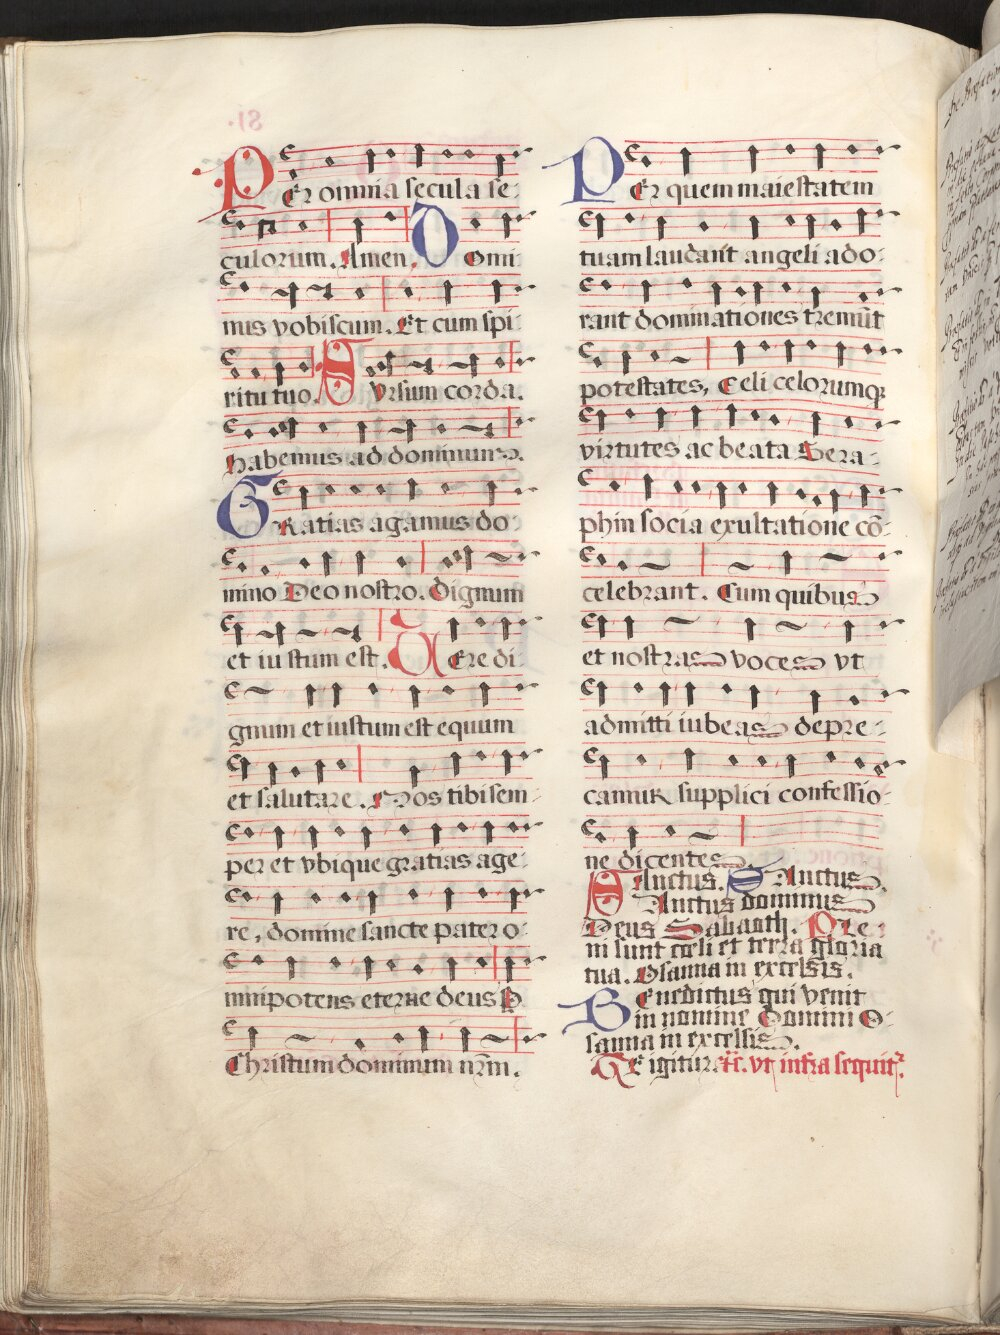 PEr omnia secula se
culorum. Amen. DOmi
nus vobiscum. Et cum spi
ritu tuo. SVrsum corda.
Habemus ad dominum.
GRatias agamus do
mino Deo nostro. Dignum
et iustum est. VEre di
gnum et iustum est equum
et salutare. Nos tibi sem
per et vbique gratias age
re, domine sancte pater o
mnipotens eterne deus P
Christum dominum nr̄m.
PEr quem maiestatem
tuam laudant angeli ado
rant dominationes tremūt
potestates, Celi celorumq
virtutes ac beata Sera
phin socia exultatione cō
celebrant. Cum quibus
et nostras voces vt
admitti iubeas depre
camur supplici confessio
ne dicentes.
SAnctus. SAnctus.
SAnctus dominus
Deus Sabaoth. Ple
ni sunt celi et terra gloria
tua. Osanna in excelsis.
BEnedictus qui venit
in nomine Domini O
sanna in excelsis.
TE igitur. &c. vt infra sequit᷑.